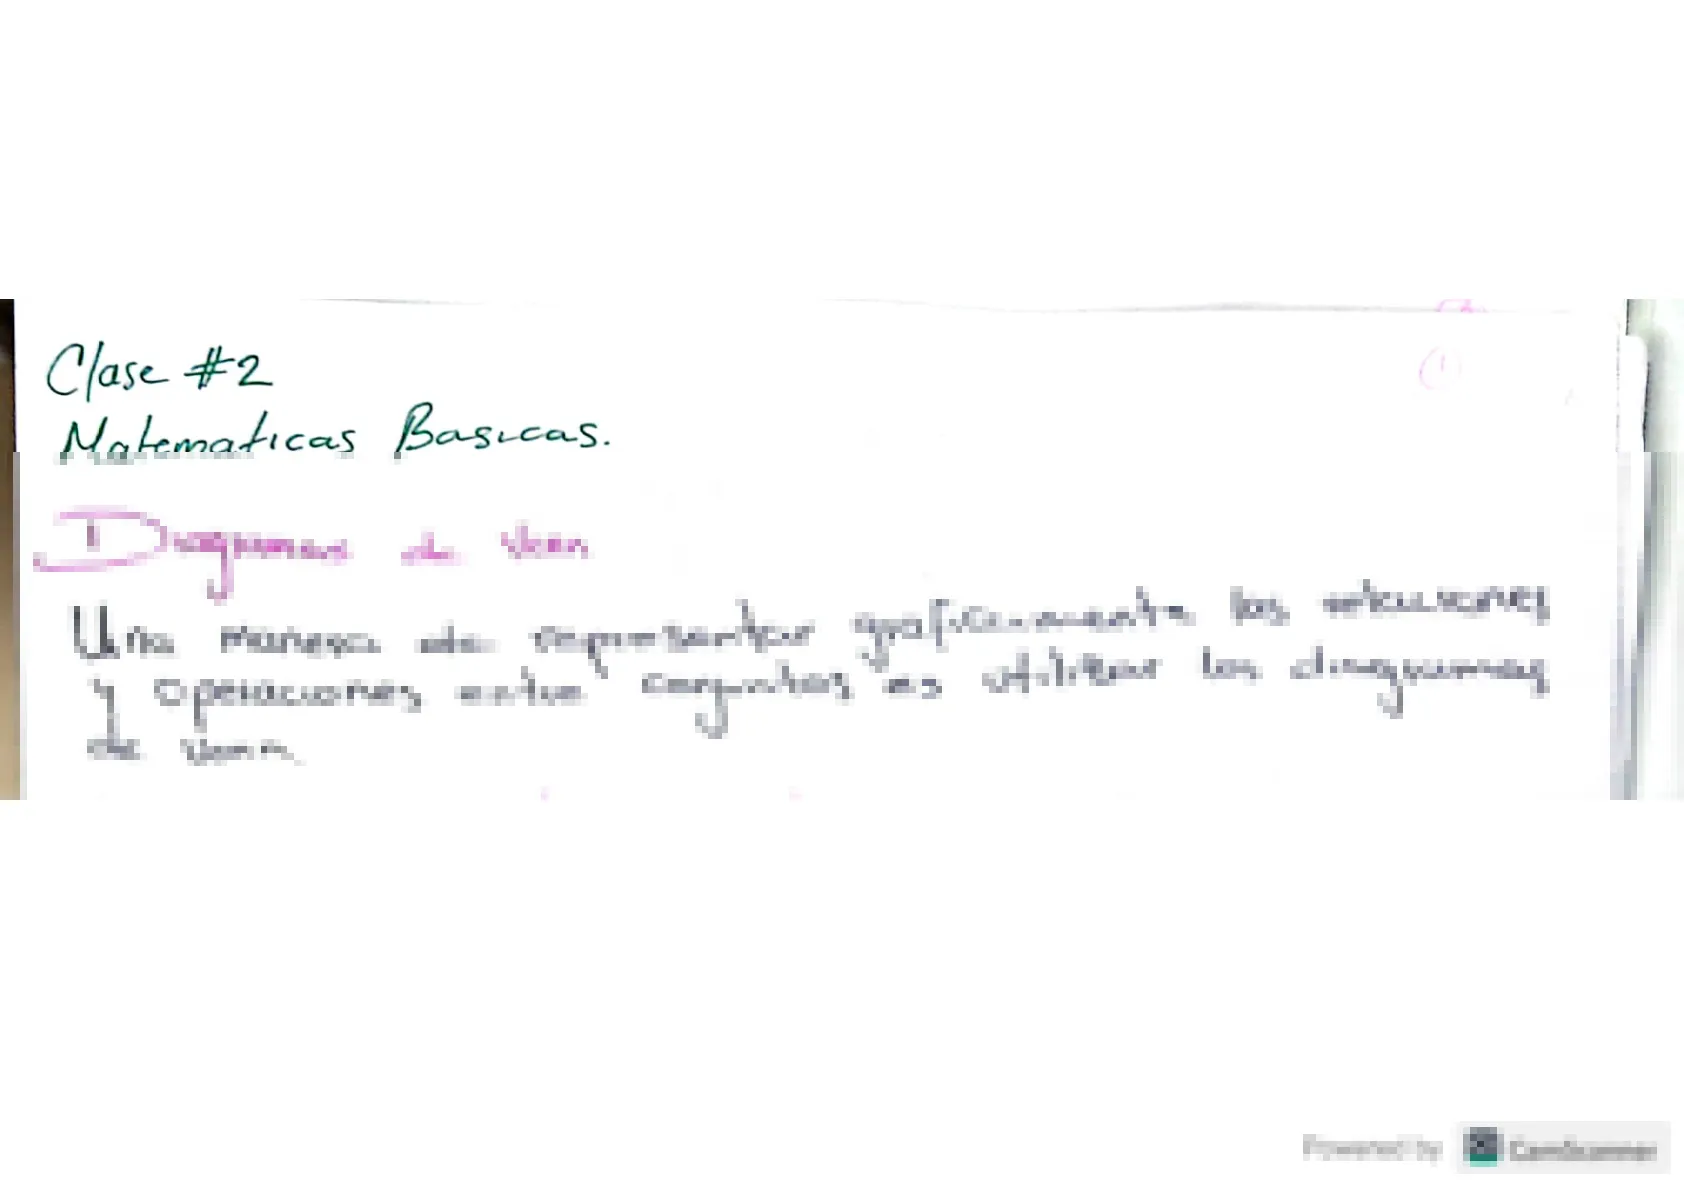 Clase #2
Matematicas Basicas.
Diagramas de Venn
Una manera de representar graficamente las relaciones
y operaciones entre conjuntos es utilizar los diagramas
de Venn.
Powered by CamScanner